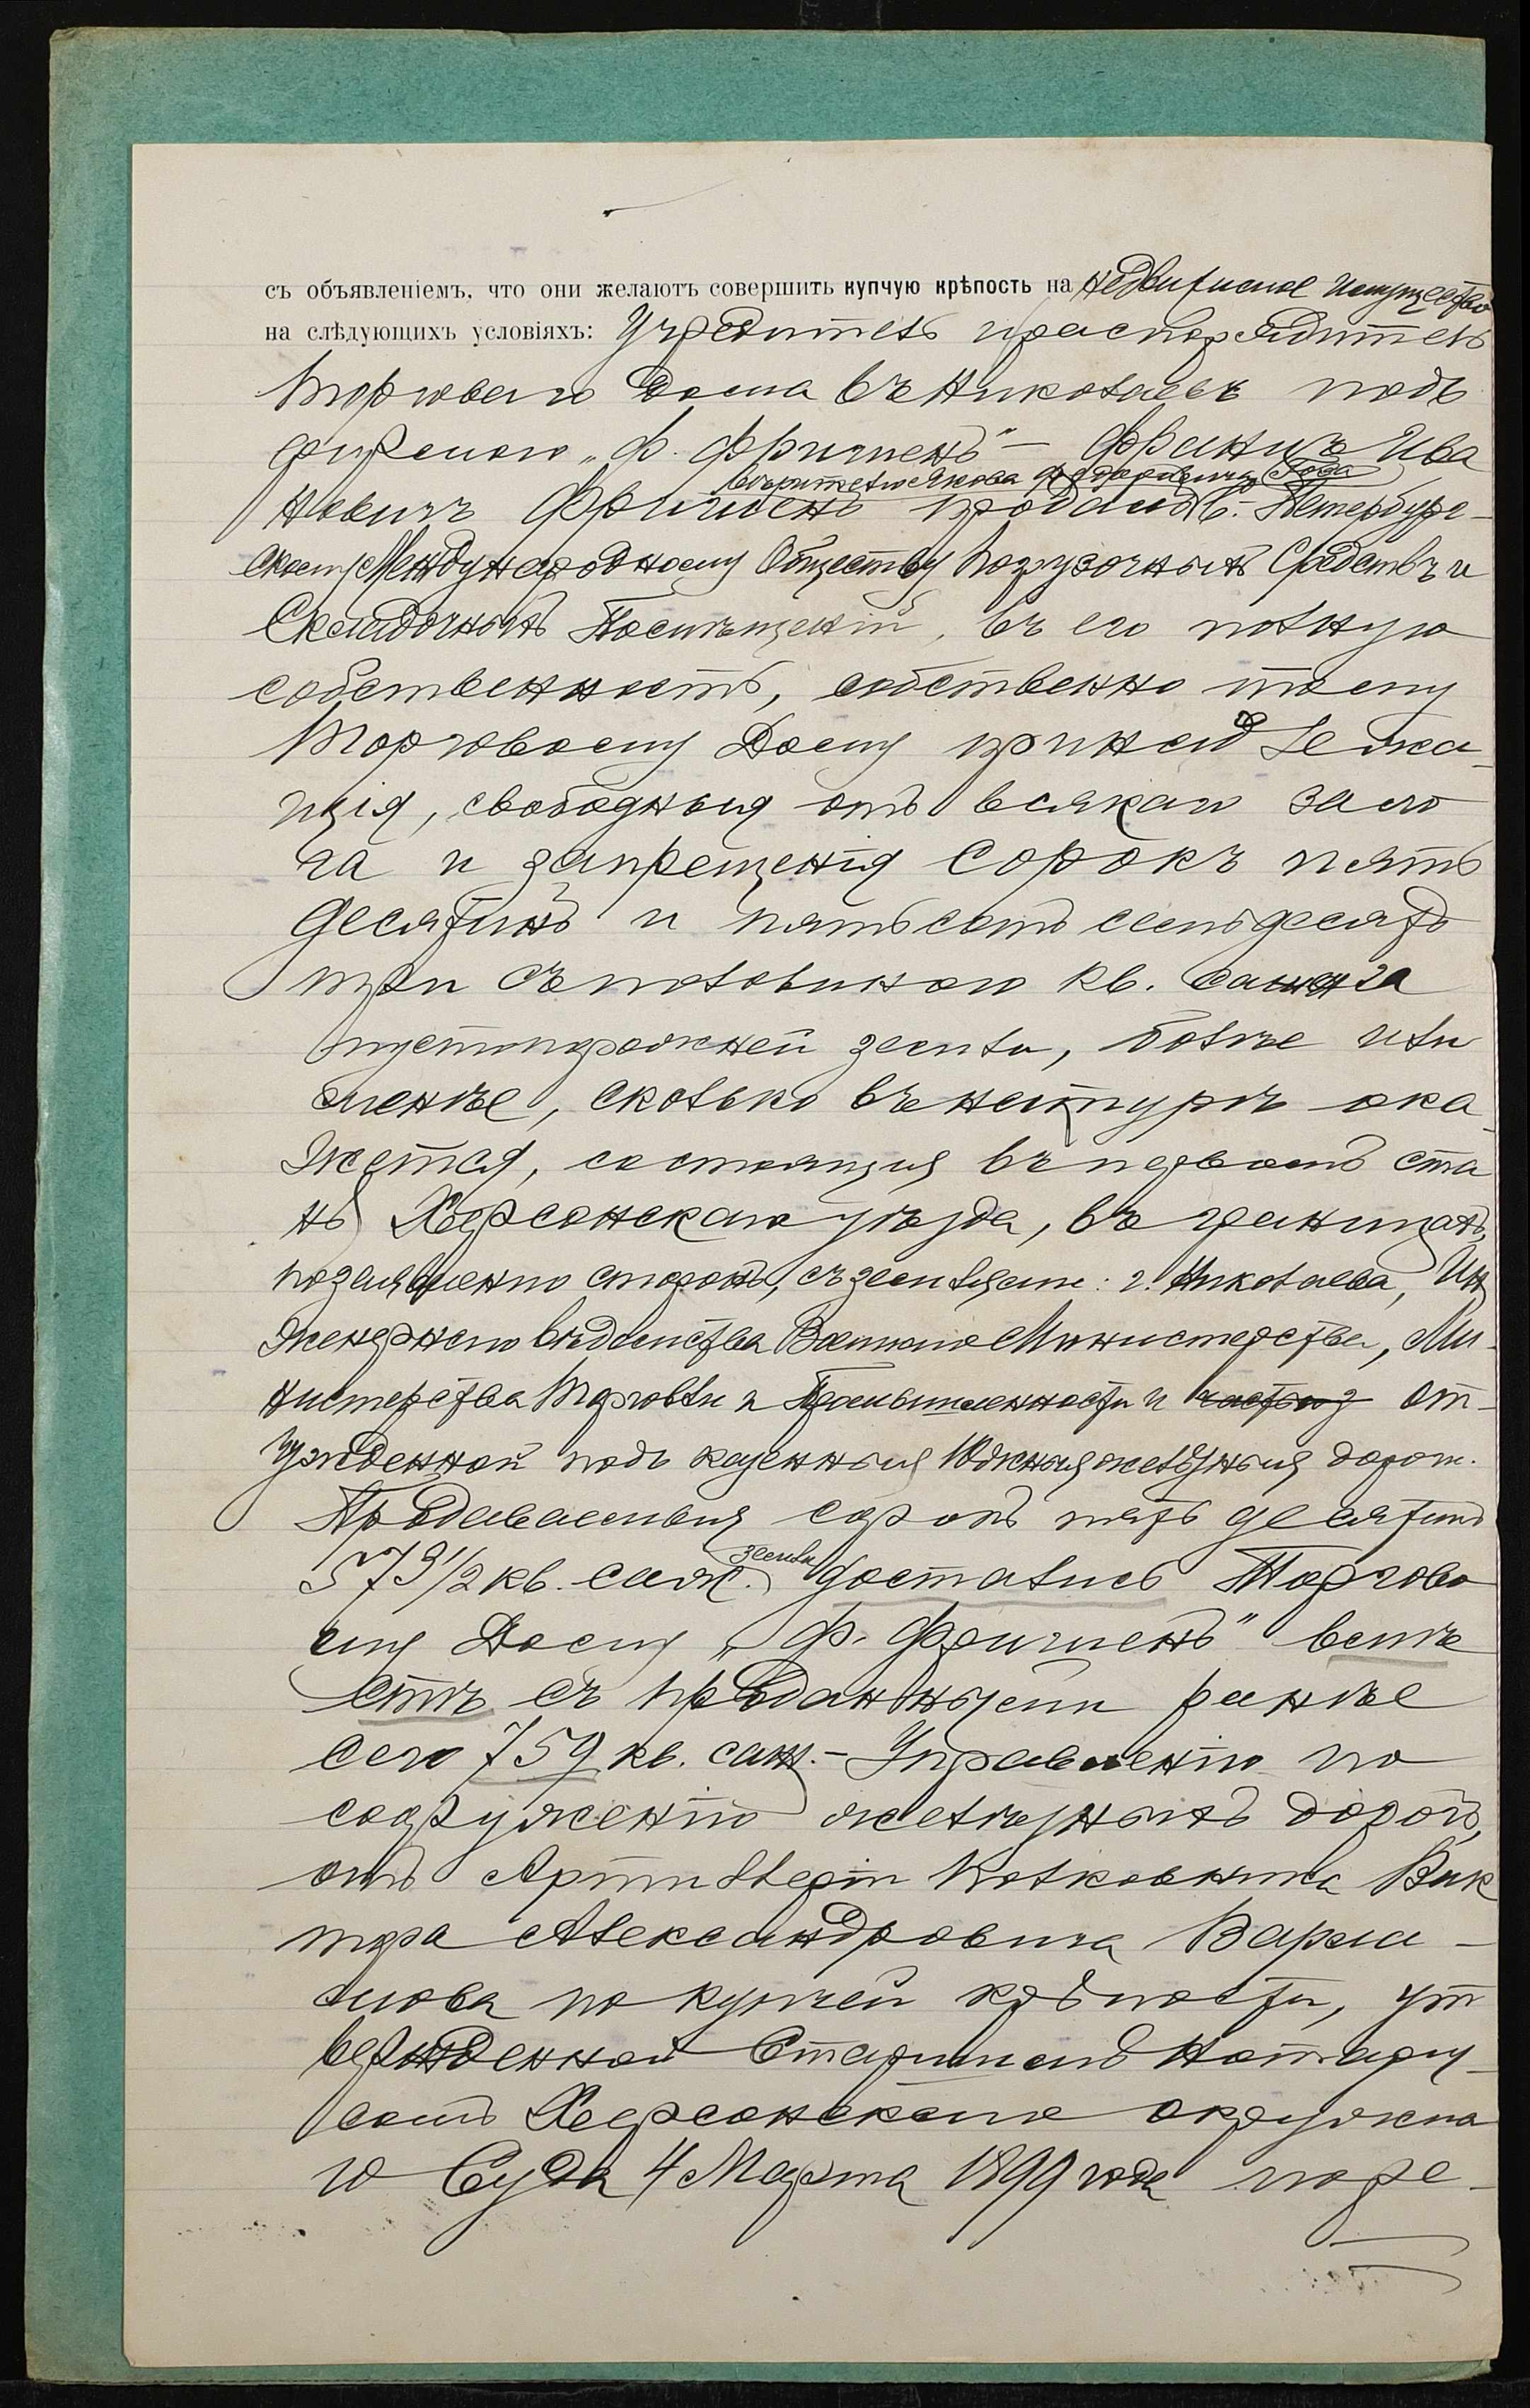 съ объявленіемъ, что они желаютъ совершить купчую крѣпость на недвижимое имущество
на слѣдующихъ условіяхъ: Учредитель распорядитель
Торговаго Дома въ Николаевѣ подъ
фирмою „Ф. Фришенъ" — Францъ Ива
довѣрителю Якова Федоровича
новичъ Фришенъ продалъ С.-Петербург-
скому Международному Обществу Погрузочныхъ Средствъ и
Складочныхъ Помѣщеній, въ его полную
собственность, собственно тому
Торговому Дому принадлежа-
щія, свободныя отъ всякаго зало
га и запрещенія сорокъ пять
десятинъ и пятьсотъ семьдесятъ
три съ половиною кв. сажня
пустопорожней земли, болѣе или
менѣе, сколько въ натурѣ ока-
жется, состоящія въ первомъ ста
нѣ Херсонскаго уѣзда, въ границахъ,
по заявленію сторонъ, съ землями: г. Николаева, Ин
женернаго вѣдомства Военнаго Министерства, Ми-
нистерства Торговли и Промышленности и частью от-
чужденной подъ казенныя Южныя желѣзныя дороги.
Продаваемыя сорокъ пять десятинъ
земли
573 1/2 кв. саж. достались Торгово
му Дому „Ф. Фришенъ" вмѣ
стѣ съ проданными ранѣе
сего 759 кв. саж. — Управленію по
сооруженію желѣзныхъ дорогъ,
отъ Артиллеріи Полковника Вик
тора Александровича Варла-
мова по купчей крѣпости, ут
вержденной Старшимъ Нотаріу-
сомъ Херсонскаго окружна
го Суда 4 Марта 1899 года по ре-